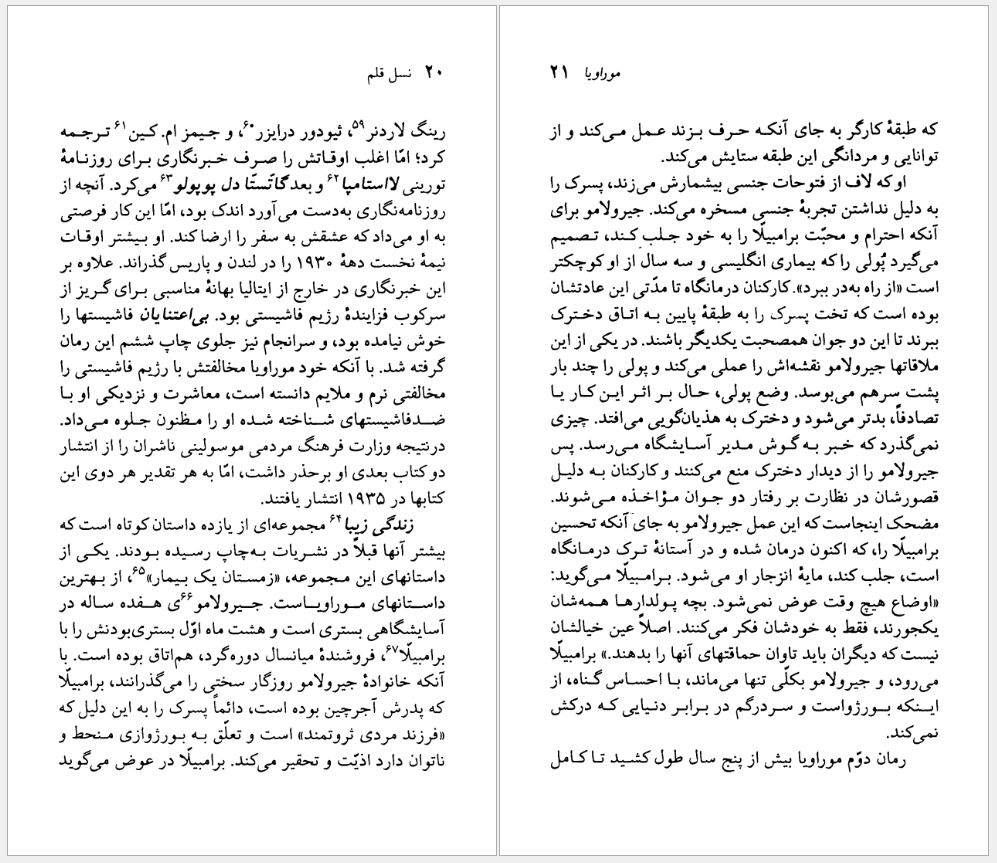 ۲۰ نسل قلم
رینگ لاردنر۵۹، ثیودور درایزر۶۰، و جیمز ام. کین۶۱ ترجمه
کرد؛ امّا اغلب اوقاتش را صرف خبرنگاری برای روزنامهٔ
تورینی لااستامپا۶۲ و بعد گاتسّتا دل پوپولو۶۳ می‌کرد. آنچه از
روزنامه‌نگاری به‌دست می‌آورد اندک بود، امّا این کار فرصتی
به او می‌داد که عشقش به سفر را ارضا کند. او بیشتر اوقات
نیمهٔ نخست دههٔ ۱۹۳۰ را در لندن و پاریس گذراند. علاوه بر
این خبرنگاری در خارج از ایتالیا بهانهٔ مناسبی برای گریز از
سرکوب فزایندهٔ رژیم فاشیستی بود. بی‌اعتنایان فاشیستها را
خوش نیامده بود، و سرانجام نیز جلوی چاپ ششم این رمان
گرفته شد. با آنکه خود موراویا مخالفتش با رژیم فاشیستی را
مخالفتی نرم و ملایم دانسته است، معاشرت و نزدیکی او با
ضدفاشیستهای شناخته شده او را مظنون جلوه می‌داد.
درنتیجه وزارت فرهنگ مردمی موسولینی ناشران را از انتشار
دو کتاب بعدی او برحذر داشت، امّا به هر تقدیر هر دوی این
کتابها در ۱۹۳۵ انتشار یافتند.
زندگی زیبا۶۴ مجموعه‌ای از یازده داستان کوتاه است که
بیشتر آنها قبلاً در نشریات به‌چاپ رسیده بودند. یکی از
داستانهای این مجموعه، «زمستان یک بیمار»۶۵، از بهترین
داستانهای موراویاست. جیرولامو۶۶ی هفده ساله در
آسایشگاهی بستری است و هشت ماه اوّل بستری‌بودنش را با
برامبیلّا۶۷، فروشندهٔ میانسال دوره‌گرد، هم‌اتاق بوده است. با
آنکه خانوادهٔ جیرولامو روزگار سختی را می‌گذرانند، برامبیلّا
که پدرش آجرچین بوده است، دائماً پسرک را به این دلیل که
«فرزند مردی ثروتمند» است و تعلّق به بورژوازی منحط و
ناتوان دارد اذیّت و تحقیر می‌کند. برامبیلّا در عوض می‌گوید
موراویا ۲۱
که طبقهٔ کارگر به جای آنکه حرف بزند عمل می‌کند و از
توانایی و مردانگی این طبقه ستایش می‌کند.
او که لاف از فتوحات جنسی بیشمارش می‌زند، پسرک را
به دلیل نداشتن تجربهٔ جنسی مسخره می‌کند. جیرولامو برای
آنکه احترام و محبّت برامبیلّا را به خود جلب کند، تصمیم
می‌گیرد پُولی را که بیماری انگلیسی و سه سال از او کوچکتر
است «از راه به‌در ببرد». کارکنان درمانگاه تا مدّتی این عادتشان
بوده است که تخت پسرک را به طبقهٔ پایین به اتاق دخترک
ببرند تا این دو جوان همصحبت یکدیگر باشند. در یکی از این
ملاقاتها جیرولامو نقشه‌اش را عملی می‌کند و پولی را چند بار
پشت سرهم می‌بوسد. وضع پولی، حال بر اثر این کار یا
تصادفاً، بدتر می‌شود و دخترک به هذیان‌گویی می‌افتد. چیزی
نمی‌گذرد که خبر به گوش مدیر آسایشگاه می‌رسد. پس
جیرولامو را از دیدار دخترک منع می‌کنند و کارکنان به دلیل
قصورشان در نظارت بر رفتار دو جوان مؤاخذه می‌شوند.
مضحک اینجاست که این عمل جیرولامو به جای آنکه تحسین
برامبیلّا را، که اکنون درمان شده و در آستانهٔ ترک درمانگاه
است، جلب کند، مایهٔ انزجار او می‌شود. برامبیلّا می‌گوید:
«اوضاع هیچ وقت عوض نمی‌شود. بچه پولدارها همه‌شان
یکجورند، فقط به خودشان فکر می‌کنند. اصلاً عین خیالشان
نیست که دیگران باید تاوان حماقتهای آنها را بدهند.» برامبیلّا
می‌رود، و جیرولامو بکلّی تنها می‌ماند، با احساس گناه، از
اینکه بورژواست و سردرگم در برابر دنیایی که درکش
نمی‌کند.
رمان دوّم موراویا بیش از پنج سال طول کشید تا کامل